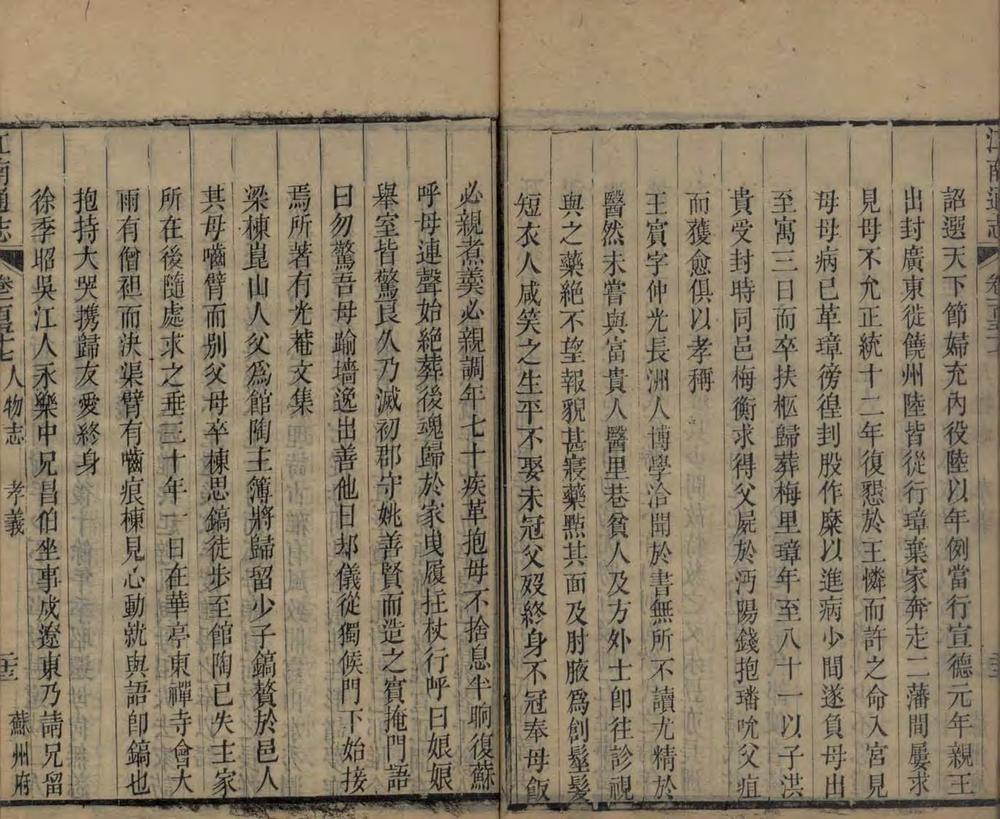 江南通志
詔選天下節婦充內役陸以年例當行宣德元年親王
出封廣東從饒州陸皆從行璋棄家奔走二藩間屢求
見母不允正統十二年復懇於王憐而許之命入宮見
母母病已革璋徬徨刲股作糜以進病少間遂負母出
至寓三日而卒扶柩歸葬梅里璋年至八十一以子洪
貴受封時同邑梅衡求得父屍於沔陽錢抱璠吮父疽
而獲愈俱以孝稱
王賓字仲光長洲人博學洽聞於書無所不讀尤精於
醫然未嘗與富貴人醫里巷貧人及方外士卽往診視
與之藥絕不望報貌甚寢藥㸃其面及肘腋爲創髽髮
短衣人咸笑之生平不娶未冠父歿終身不冠奉母飯
必親煮羮必親調年七十疾革抱母不捨息半晌復蘇
呼母連聲始絕葬後魂歸於家曳履拄杖行呼曰娘娘
舉室皆驚良久乃滅初郡守姚善賢而造之賓掩門語
曰勿驚吾母踰墻逸出善他日却儀從獨候門下始接
焉所著有光菴文集
梁棟崑山人父爲館陶主簿將歸留少子鎬贅於邑人
其母嚙臂而别父母卒棟思鎬徒步至館陶已失主家
所在後隨處求之垂三十年一日在華亭東禪寺會大
雨有僧袒而決渠臂有嚙痕棟見心動就與語卽鎬也
抱持大哭携歸友愛終身
徐季昭吳江人永樂中兄昌伯坐事戍遼東乃請兄留
江南通志 卷一百五十七 人物志 孝義 蘇州府